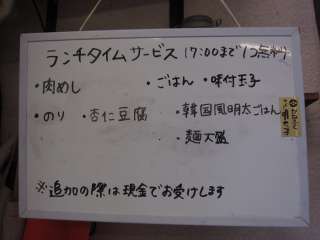 ランチタイムサービス 17:00まで1つ無料
・肉めし ・ごはん ・味付玉子
・のり ・杏仁豆腐 ・韓国風明太ごはん
・麺大盛
※追加の際は現金でお受けします